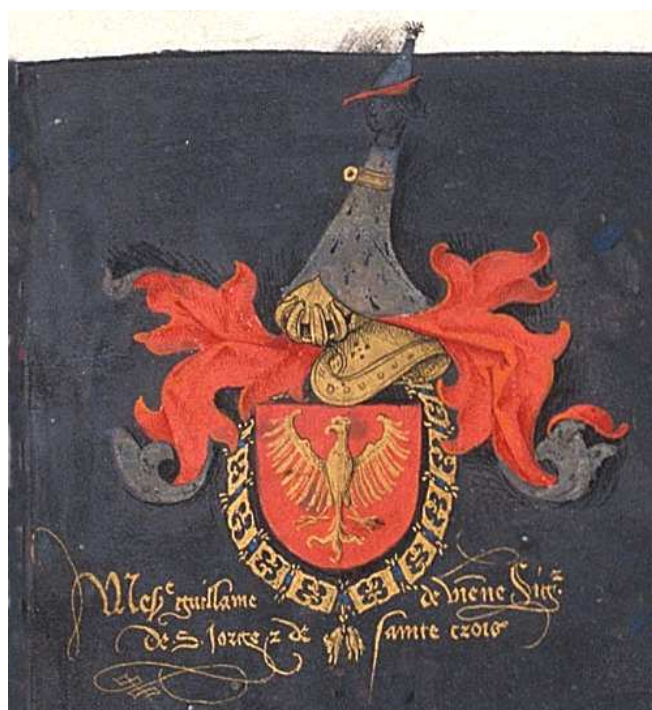 Messe guillame de viēne Sigr
de S. Jorge z de sainte crois